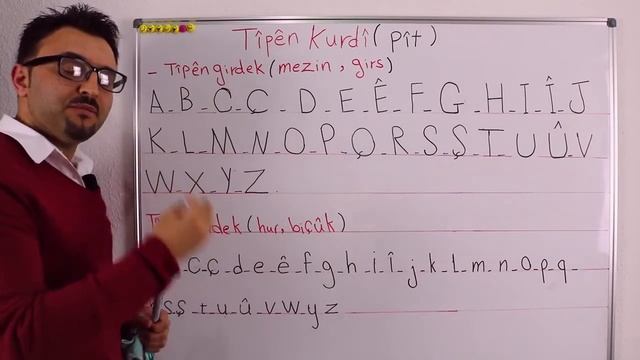 Tîpên Kurdî( pît )
- Tîpên girdek(mezin , girs)
A_B_C_Ç_D_E_Ê_F_G_H_I_Î_J
K_L_M_N_O_P_Q_R_S_Ş_T_U_Û_V
W_X_Y_Z
(hur, biçûk)
c_ç_d_e_ê_f_g_h_i_î_j_k_l_m_n_o_p_q_
s_ş_t_u_û_v_w_y_z